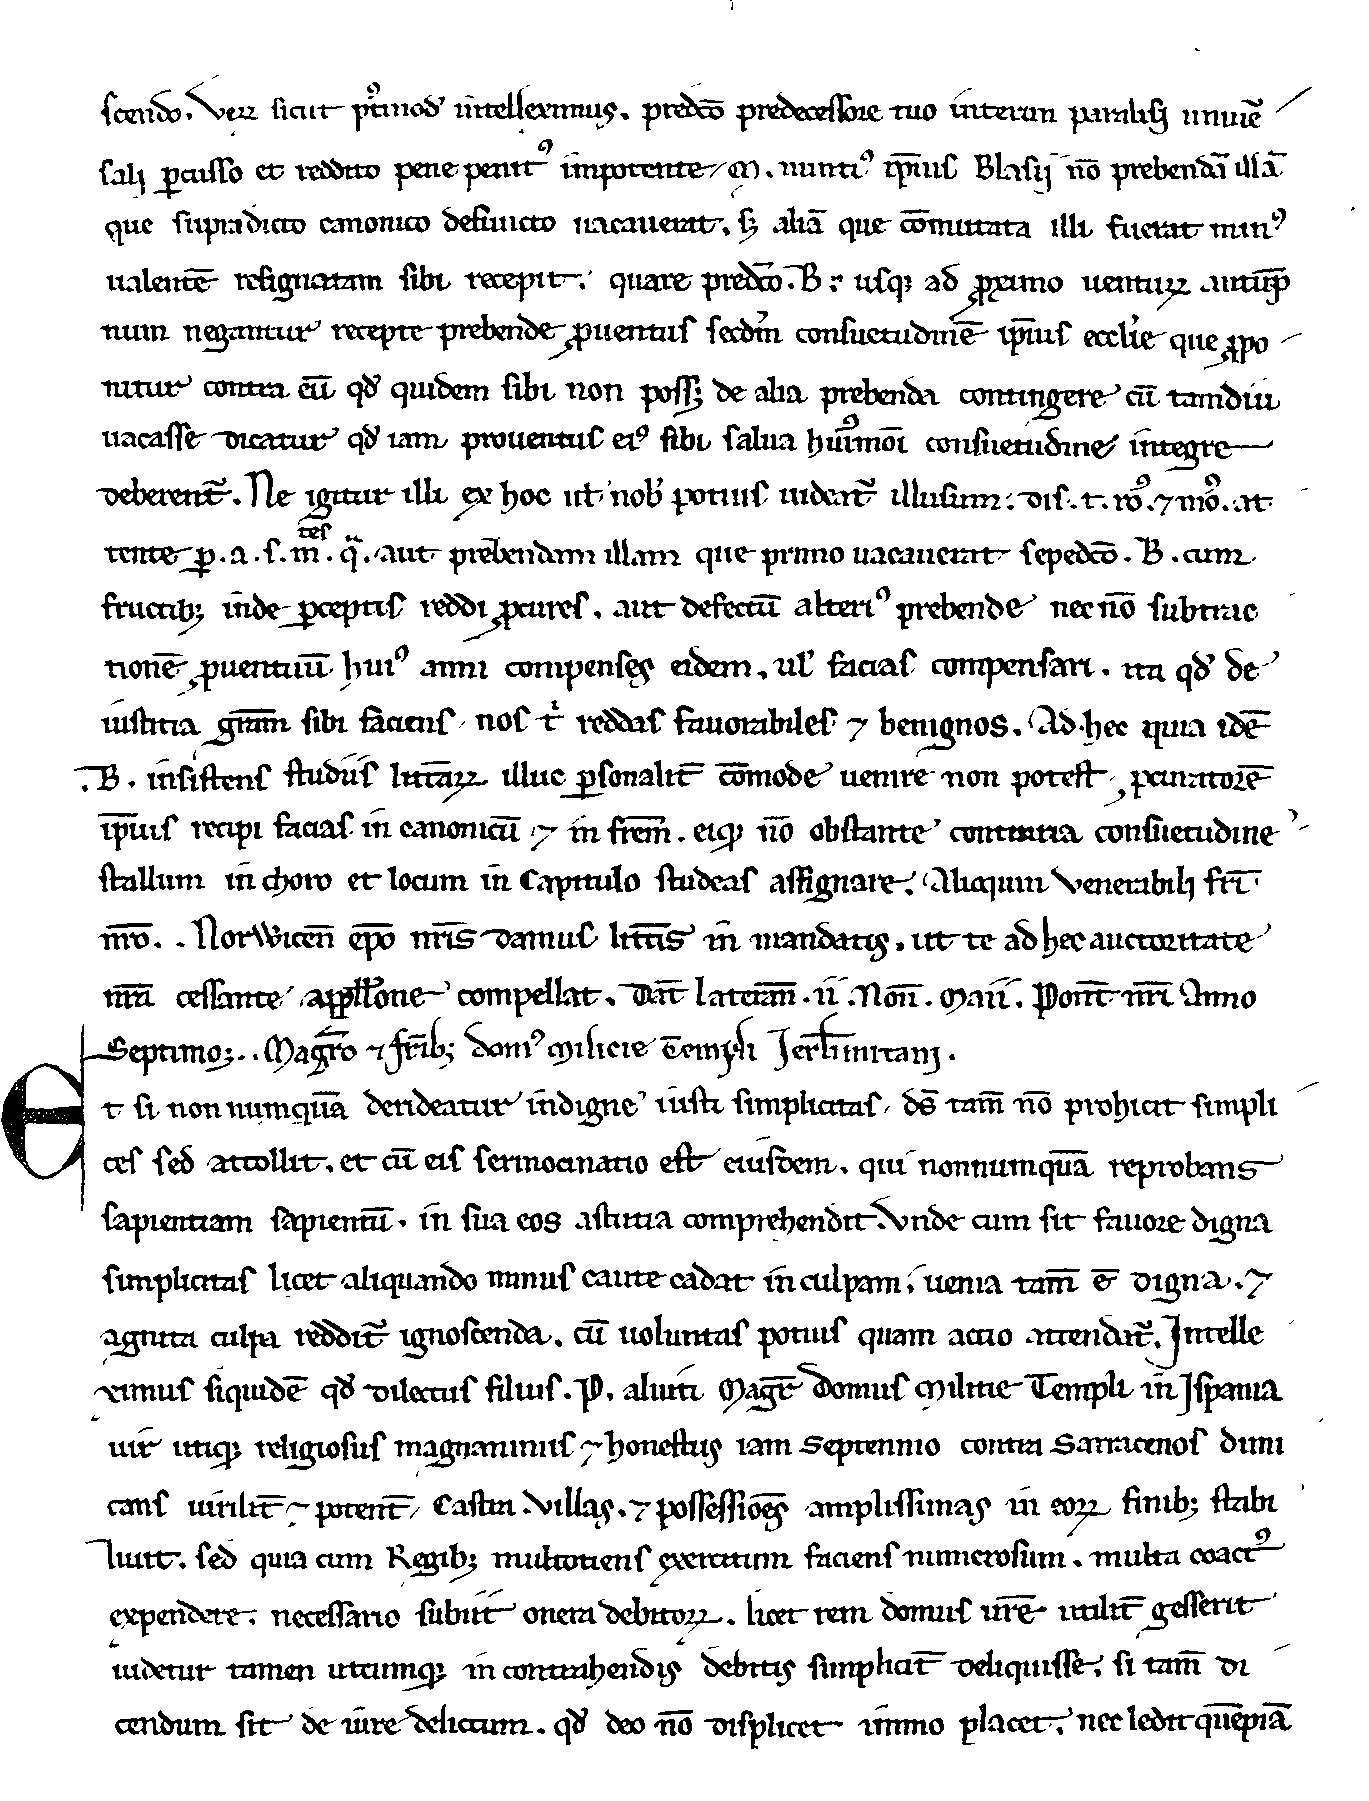 scendo. Ver̄ sicut p᷒tmod̄ intelleximus. predc̄o predecessore tuo interim paralisi uniuē
sali ꝑcusso et reddito pene penit᷒ impotente. M. nunti᷒ ip̄ius Blasij nō prebendā illā
que supradicto canonico defuncto uacauerat. sꝫ aliā que cōmutata illi fuerat min᷒
ualentē resignatam sibi recepit. quare predc̄o. B. usqꝫ ad ꝓximo uenturꝝ autūp
num negantur recepte prebende ꝓuentus secdm̄ consuetudinē ip̄ius eccl̄ie que ꝓpo
nitur contra eū qd̄ quidem sibi non possꝫ de alia prebenda contingere cū tamdiu
uacasse dicatur qd̄ iam prouentus ei᷒ sibi salua hui᷒moī consuetudine integre
deberent̄. Ne igitur illi ex hoc ul̄ nob̄ potius uideat̄ illusum. dis. t. ro᷒. ⁊ mo᷒. at
tente ꝑ. a. s. m̄. tēs q̄. aut prebendam illam que primo uacauerat sepedc̄o. B. cum
fructibꝫ inde ꝑceptis reddi ꝓcures. aut defectū alteri᷒ prebende nec nō subtrac
tionē ꝓuentuū hui᷒ anni compenses eidem. ul̄ facias compensari. ita qd̄ de
iustitia gr̄am sibi faciens nos t̄ reddas fauorabiles ⁊ benignos. Ad hec quia idē
B. insistens studiis litt̄arꝝ illuc ꝑsonalit̄ cōmode uenire non potest, ꝓcuratorē
ip̄ius recipi facias in canonicū ⁊ in fr̄em. eiqꝫ nō obstante contraria consuetudine
stallum in choro et locum in Capitulo studeas assignare. Alioquin Venerabili fr̄i
nr̄o. . Norwicen̄ ep̄o nr̄is damus litt̄is in mandatis. ut te ad hec auctoritate
nr̄a cessante appell̄one compellat. Dat̄ lateran̄. ii. Non̄. Maii. Pont̄ nr̄i Anno
Septimo. . Magr̄o ⁊ fr̄ibꝫ dom᷒ Milicie Templi Jerl̄imitani.
Et si nonnumquā derideatur indigne iusti simplicitas, ds̄ tam̄ nō prohicit simpli
ces sed attollit. et cū eis sermocinatio est eiusdem. qui nonnumquā reprobans
sapientiam sapientū. in sua eos astutia comprehendit. Vnde cum sit fauore digna
simplicitas licet aliquando minus caute cadat in culpam. uenia tam̄ ē digna. ⁊
agnita culpa reddit̄ ignoscenda. cū uoluntas potius quam actio attendat̄. Intelle
ximus siquidē qd̄ dilectus filius. P. aluiti Magr̄ domus Militie Templi in Ispania
uir utiqꝫ religiosus magnanimus ⁊ honestus iam septennio contra Sarracenos dimi
cans uirilit̄ ⁊ potent̄, Castra Villas. ⁊ possessiōes amplissimas in eorꝝ finibꝫ stabi
liuit. sed quia cum Regibꝫ multotiens exercitum faciens numerosum. multa coact᷒
expendere. necessario subiit onera debitorꝝ. licet rem domus ur̄e utilit̄ gesserit
uidetur tamen utcumqꝫ in contrahendis debitis simplicit̄ deliquisse. si tam̄ di
cendum sit de iure delictum. qd̄ deo nō displicet immo placet. nec ledit quēpiā